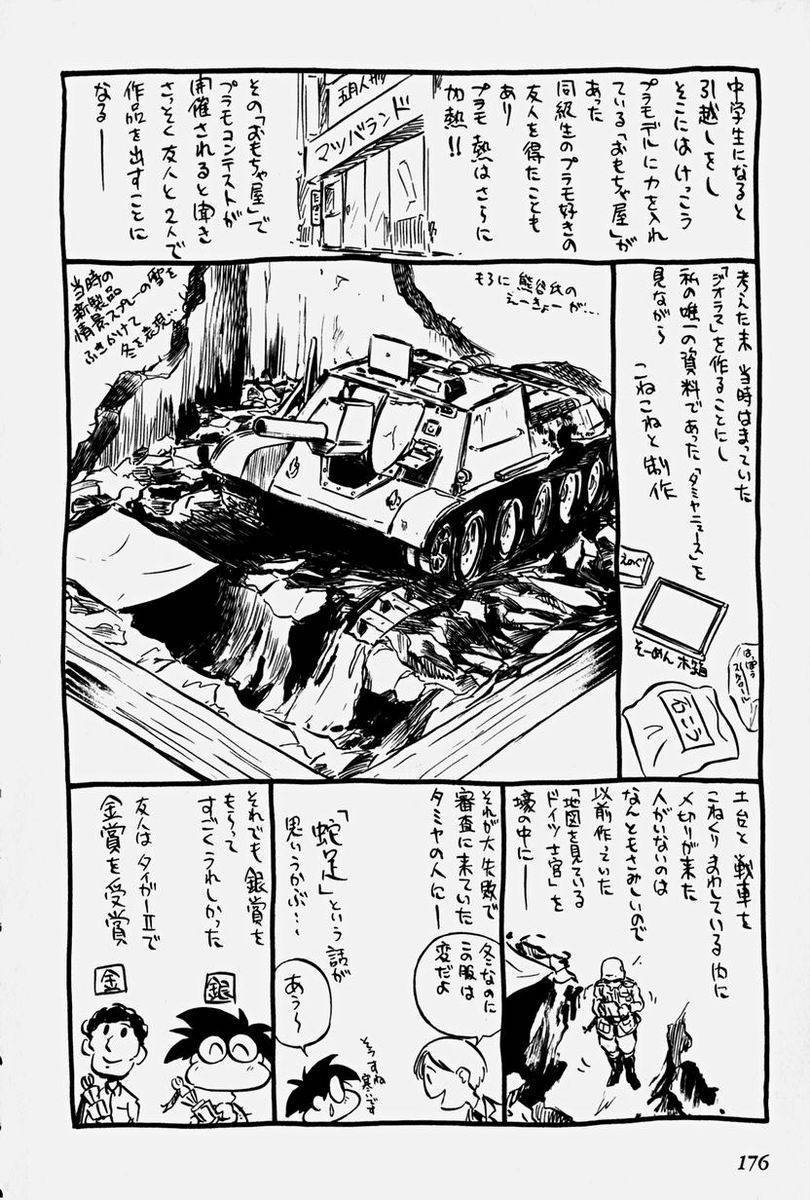 中学生になると
引越しをし
そこにはけっこう
プラモデルに力を入れ
ている「おもちゃ屋」が
あった
同級生のプラモ好きの
友人を得たことも
あり
プラモ熱はさらに
加熱!!
五月人形
マツバランド
たばこ
その「おもちゃ屋」で
プラモコンテストが
開催されると聞き
さっそく友人と2人で
作品を出すことに
なる――
考えた末 当時はまっていた
「ジオラマ」を作ることにし
私の唯一の資料であった「タミヤニュース」を
見ながら
こねこねと制作
えのぐ
そーめん木箱
石コラ
もろに 熊谷氏の
えーきょーが…
当時の
新製品
情景スプレーの雪を
ふきかけて
冬を表現…
土台と戦車を
こねくりまわしている内に
〆切りが来た
人がいないのは
なんともさみしいので
以前作っていた
「地図を見ている
ドイツ士官」を
壕の中に――
それが大失敗で
審査に来ていた
タミヤの人に――
冬なのに
この服は
変だよ
「蛇足」という話が
思いうかぶ…
あう〜
そうすね
寒いです
それでも銀賞を
もらって
すごくうれしかった
友人はタイガーⅡで
金賞を受賞
銀
金
176